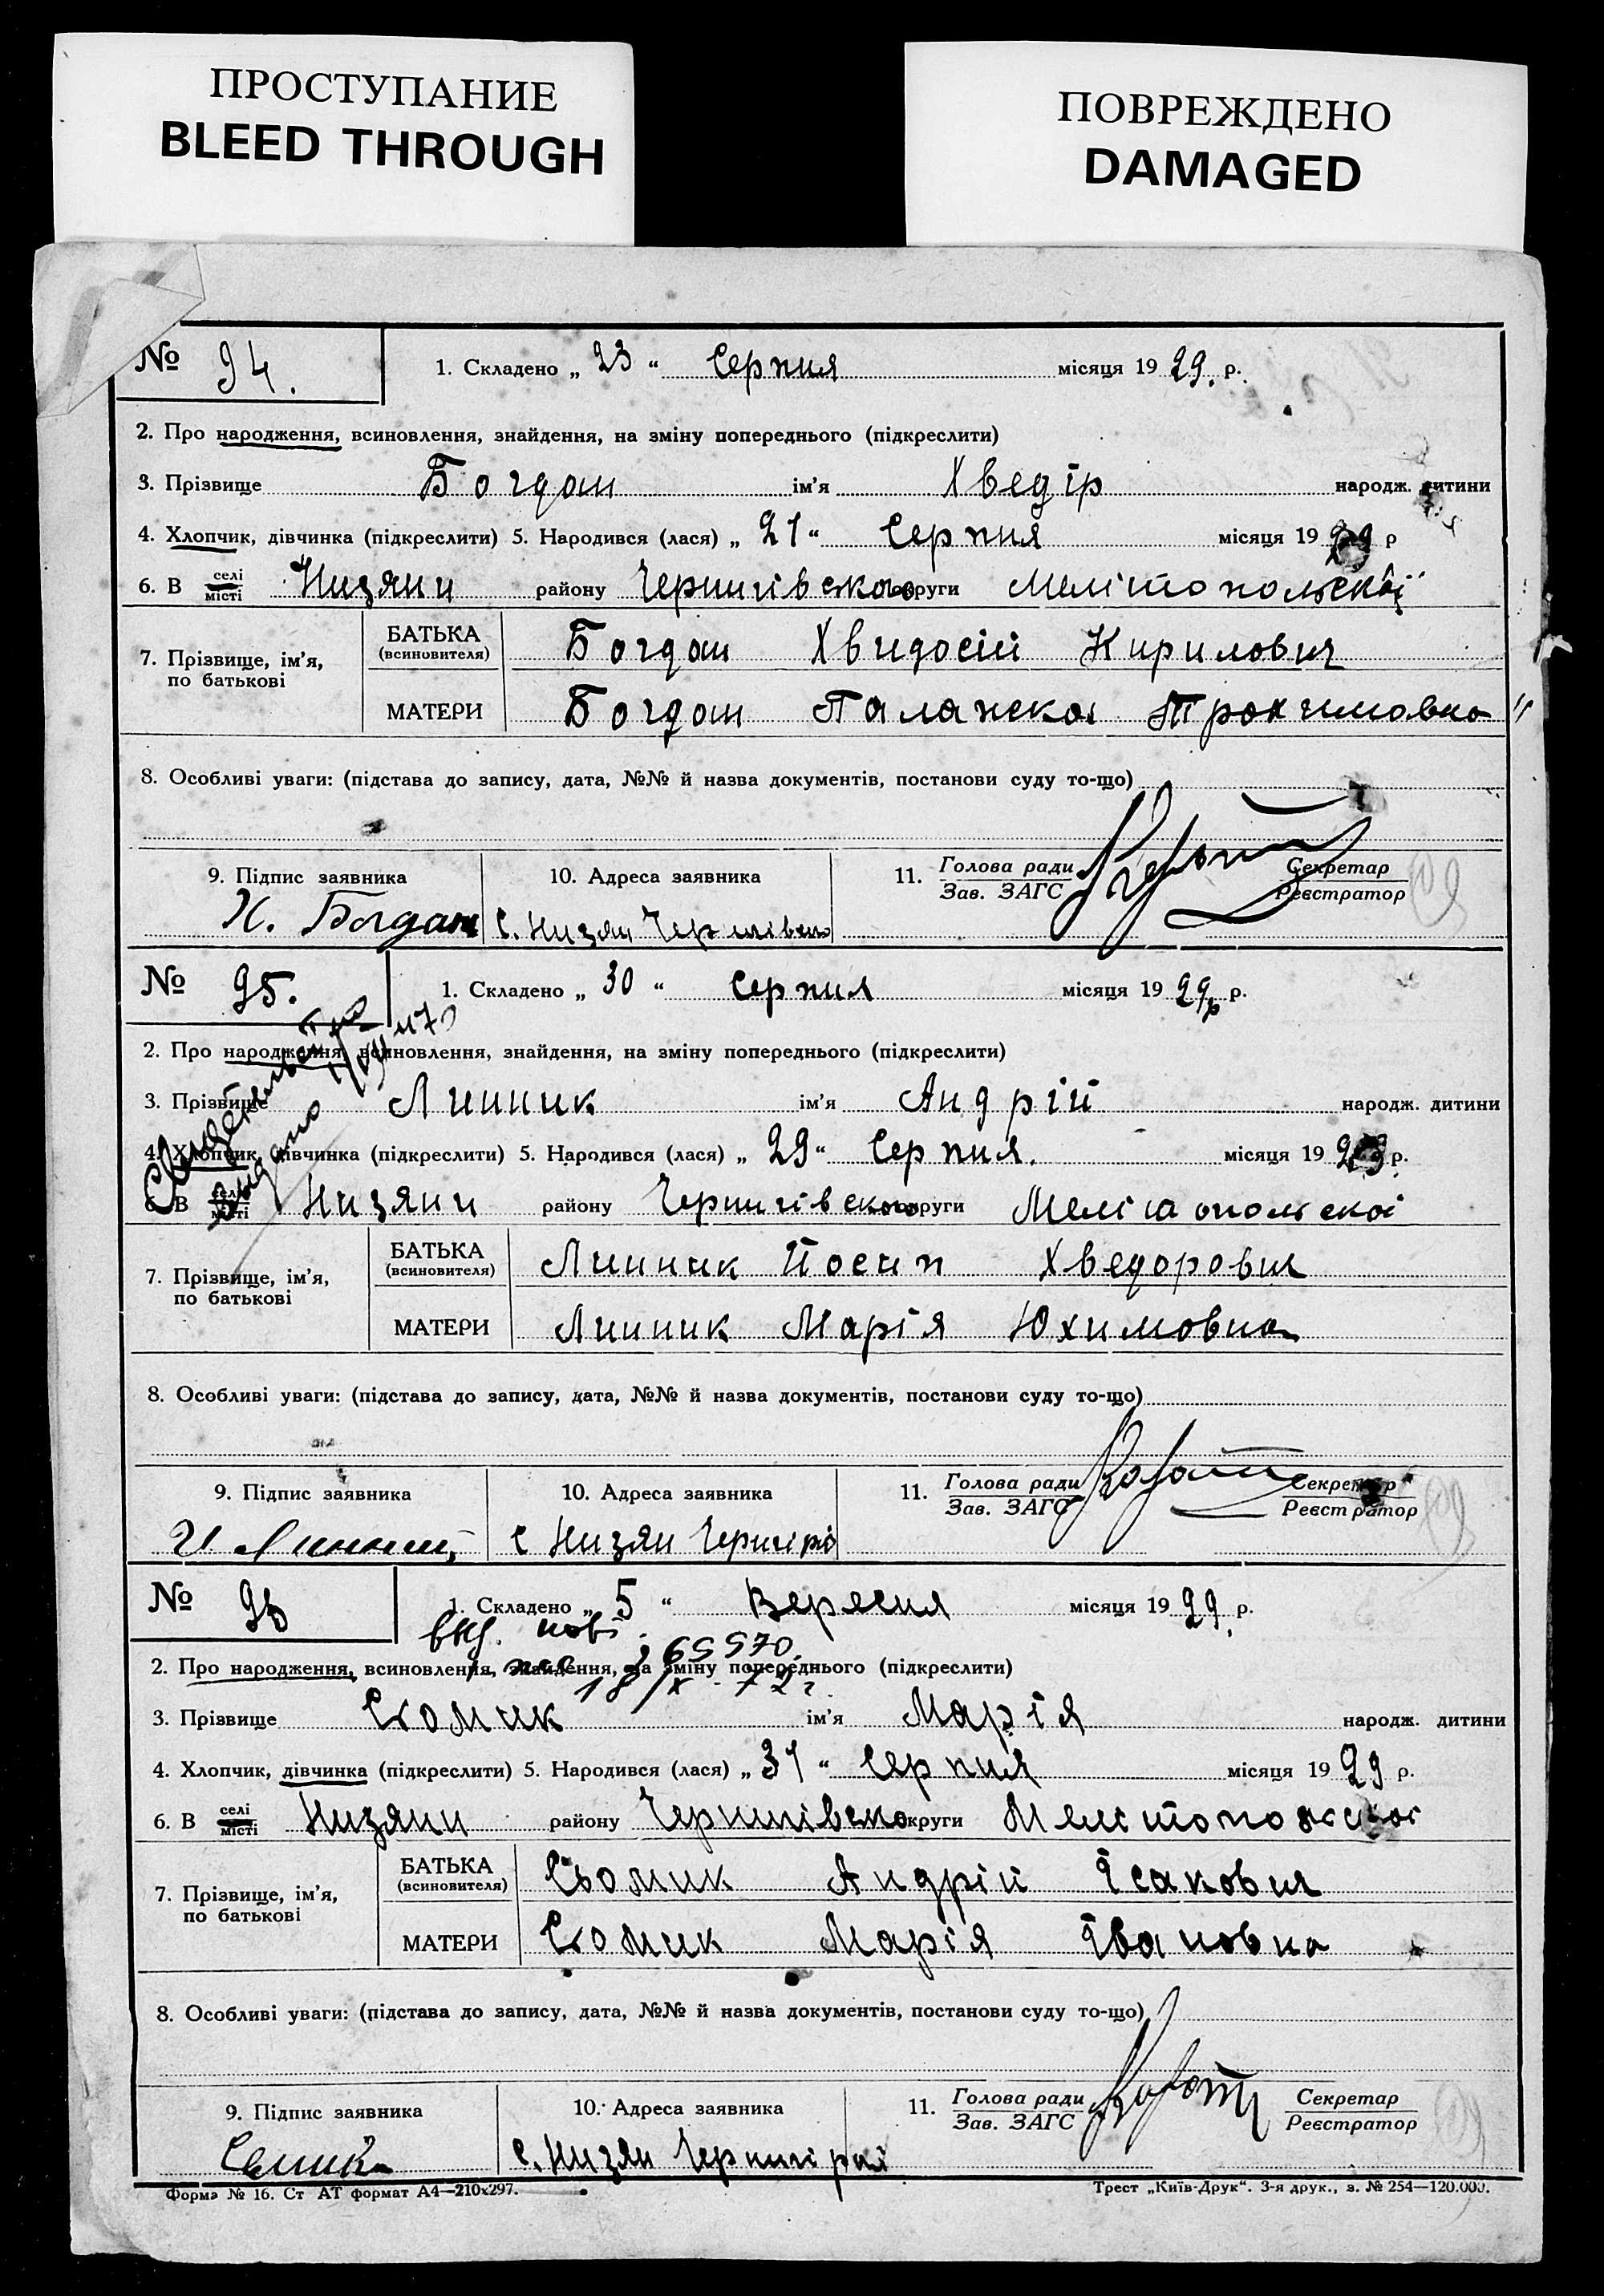 ПРОСТУПАНИЕ
BLEED THROUGH
ПОВРЕЖДЕНО
DAMAGED
№ 94. 1. Складено „ 23 “ Серпня місяця 19 29. р.
2. Про народження, всиновлення, знайдення, на зміну попереднього (підкреслити)
3. Прізвище Богдан ім’я Хведір народж. дитини
4. Хлопчик, дівчинка (підкреслити) 5. Народився (лася) „ 21 “ Серпня місяця 19 29 р
6. В селі місті Низяни району Чернигівського округи Мелітопольскої
7. Прізвище, ім’я, по батькові
БАТЬКА (всиновителя) Богдан Хвидосій Кирилович
МАТЕРИ Богдан Палажска Трохимовна
8. Особливі уваги: (підстава до запису, дата, №№ й назва документів, постанови суду то-що)
9. Підпис заявника 10. Адреса заявника 11. Голова ради Зав. ЗАГС Секретар Реєстратор
Х. Богдан С. Низяни
№ 95. 1. Складено „ 30 “ Серпня місяця 19 29 р.
2. Про народження, всиновлення, знайдення, на зміну попереднього (підкреслити)
Свидетельство
выдано
3. Прізвище Линник ім’я Андрій народж. дитини
4. Хлопчик, дівчинка (підкреслити) 5. Народився (лася) „ 29 “ Серпня. місяця 19 29 р.
6. В селі місті Низяни району Чернигівського округи Мелітопольскої
7. Прізвище, ім’я, по батькові
БАТЬКА (всиновителя) Линник Йосип Хведорович
МАТЕРИ Линник Марія Юхимовна
8. Особливі уваги: (підстава до запису, дата, №№ й назва документів, постанови суду то-що)
9. Підпис заявника 10. Адреса заявника 11. Голова ради Зав. ЗАГС Секретар Реєстратор
И Линник С Низяни
№ 96 1. Складено „ 5 “ Вересня місяця 19 29. р.
2. Про народження, всиновлення, знайдення, на зміну попереднього (підкреслити)
18/X - 72 г.
3. Прізвище Сьомик ім’я Марія народж. дитини
4. Хлопчик, дівчинка (підкреслити) 5. Народився (лася) „ 31 “ Серпня місяця 19 29 р.
6. В селі місті Низяни району Чернигівського округи Мелітопольскої
7. Прізвище, ім’я, по батькові
БАТЬКА (всиновителя) Сьомик Андрій Ісакович
МАТЕРИ Сьомик Марія Івановна
8. Особливі уваги: (підстава до запису, дата, №№ й назва документів, постанови суду то-що)
9. Підпис заявника 10. Адреса заявника 11. Голова ради Зав. ЗАГС Секретар Реєстратор
С. Низяни
Форма № 16. Ст АТ формат А4—210х297. Трест „Київ-Друк“. 3-я друк., з. № 254—120.000.